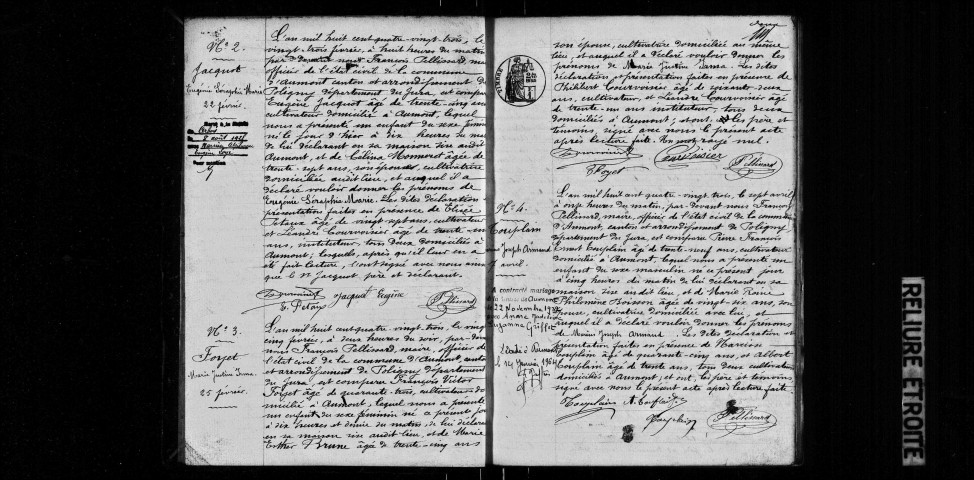 N° 2.
Jacquot
Eugénie Séraphie Marie
22 février.
L'an mil huit cent quatre-vingt-trois, le
vingt-trois février, à huit heures du matin
par devant nous François Pellissard, maire
officier de l'état civil de la commune
d'Aumont canton et arrondissement de
Poligny département du Jura, est comparu
Eugène Jacquot âgé de trente-cinq ans
cultivateur domicilié à Aumont, lequel
nous a présenté un enfant du sexe féminin
né le jour d'hier à dix heures du
de lui déclarant en sa maison sise audit
Aumont, et de Célina Momerot âgée de
trente-sept ans, son épouse, cultivatrice
domiciliée audit lieu, et auquel il a
déclaré vouloir donner les prénoms de
Eugénie Séraphie Marie. Les dites déclaration
présentation faites en présence de Elisée
Petaux âgé de vingt-sept ans, cultivateur
et Léandre Courvoisier âgé de trente-un
ans, instituteur, tous deux domiciliés à
Aumont; lesquels, après qu'il leur en a
été fait lecture, ont signé avec nous ainsi
que le Sr Jacquot père et déclarant.
Jacquot Eugène
E. Petaux
Pellissard
N° 3.
Forget
Marie Justine Irma.
25 février.
L'an mil huit cent quatre-vingt-trois, le vingt
cinq février, à deux heures du soir, par-devant
nous François Pellissard, maire, officier de
l'état civil de la commune d'Aumont, canton
et arrondissement de Poligny département
du Jura, est comparu François Victor
Forget âgé de quarante-trois, cultivateur
domicilié à Aumont, lequel nous a présenté
un enfant du sexe féminin né ce présent jour
à dix heures et demie du matin, de lui déclarant
en sa maison sise audit lieu, et de Marie
Esther Brune âgée de trente-cinq ans
son épouse, cultivatrice domiciliée au même
lieu, et auquel il a déclaré vouloir donner les
prénoms de Marie Justine Irma. Les dites
déclaration et présentation faites en présence de
Philibert Courvoisier âgé de soixante-deux
ans, cultivateur, et Léandre Courvoisier âgé
de trente-un ans instituteur, tous deux
domiciliés à Aumont; et ont les père et
témoins signé avec nous le présent acte
après lecture faite. Un mot rayé nul.
Courvoisier
Forget
Pellissard
N° 4.
Couplain
Joseph Armand
7 avril.
A contracté mariage
à Aumont
22 Novembre
avec
Suzanne Griffet
Décédé à
le 14 janvier
L'an mil huit cent quatre-vingt-trois, le sept avril
à onze heures du matin, par-devant nous François
Pellissard, maire, officier de l'état civil de la commune
d'Aumont, canton et arrondissement de Poligny
département du Jura, est comparu Pierre François
Ernest Couplain âgé de trente-neuf ans, cultivateur
domicilié à Aumont, lequel nous a présenté un
enfant du sexe masculin né ce présent jour
à cinq heures du matin de lui déclarant en sa
maison sise audit lieu, et de Marie Reine
Philomène Boisson âgée de vingt-six ans, son
épouse, cultivatrice, domiciliée avec lui, et
auquel il a déclaré vouloir donner les prénoms
de Marie Joseph Armand. Les dites déclaration et
présentation faites en présence de Narcisse
Couplain âgé de quarante-cinq ans, et Albert
Couplain âgé de trente ans, tous deux cultivateurs
domiciliés à Aumont, et ont les père et témoins
signé avec nous le présent acte après lecture faite.
Couplain
Pellissard
RELIURE ETROITE